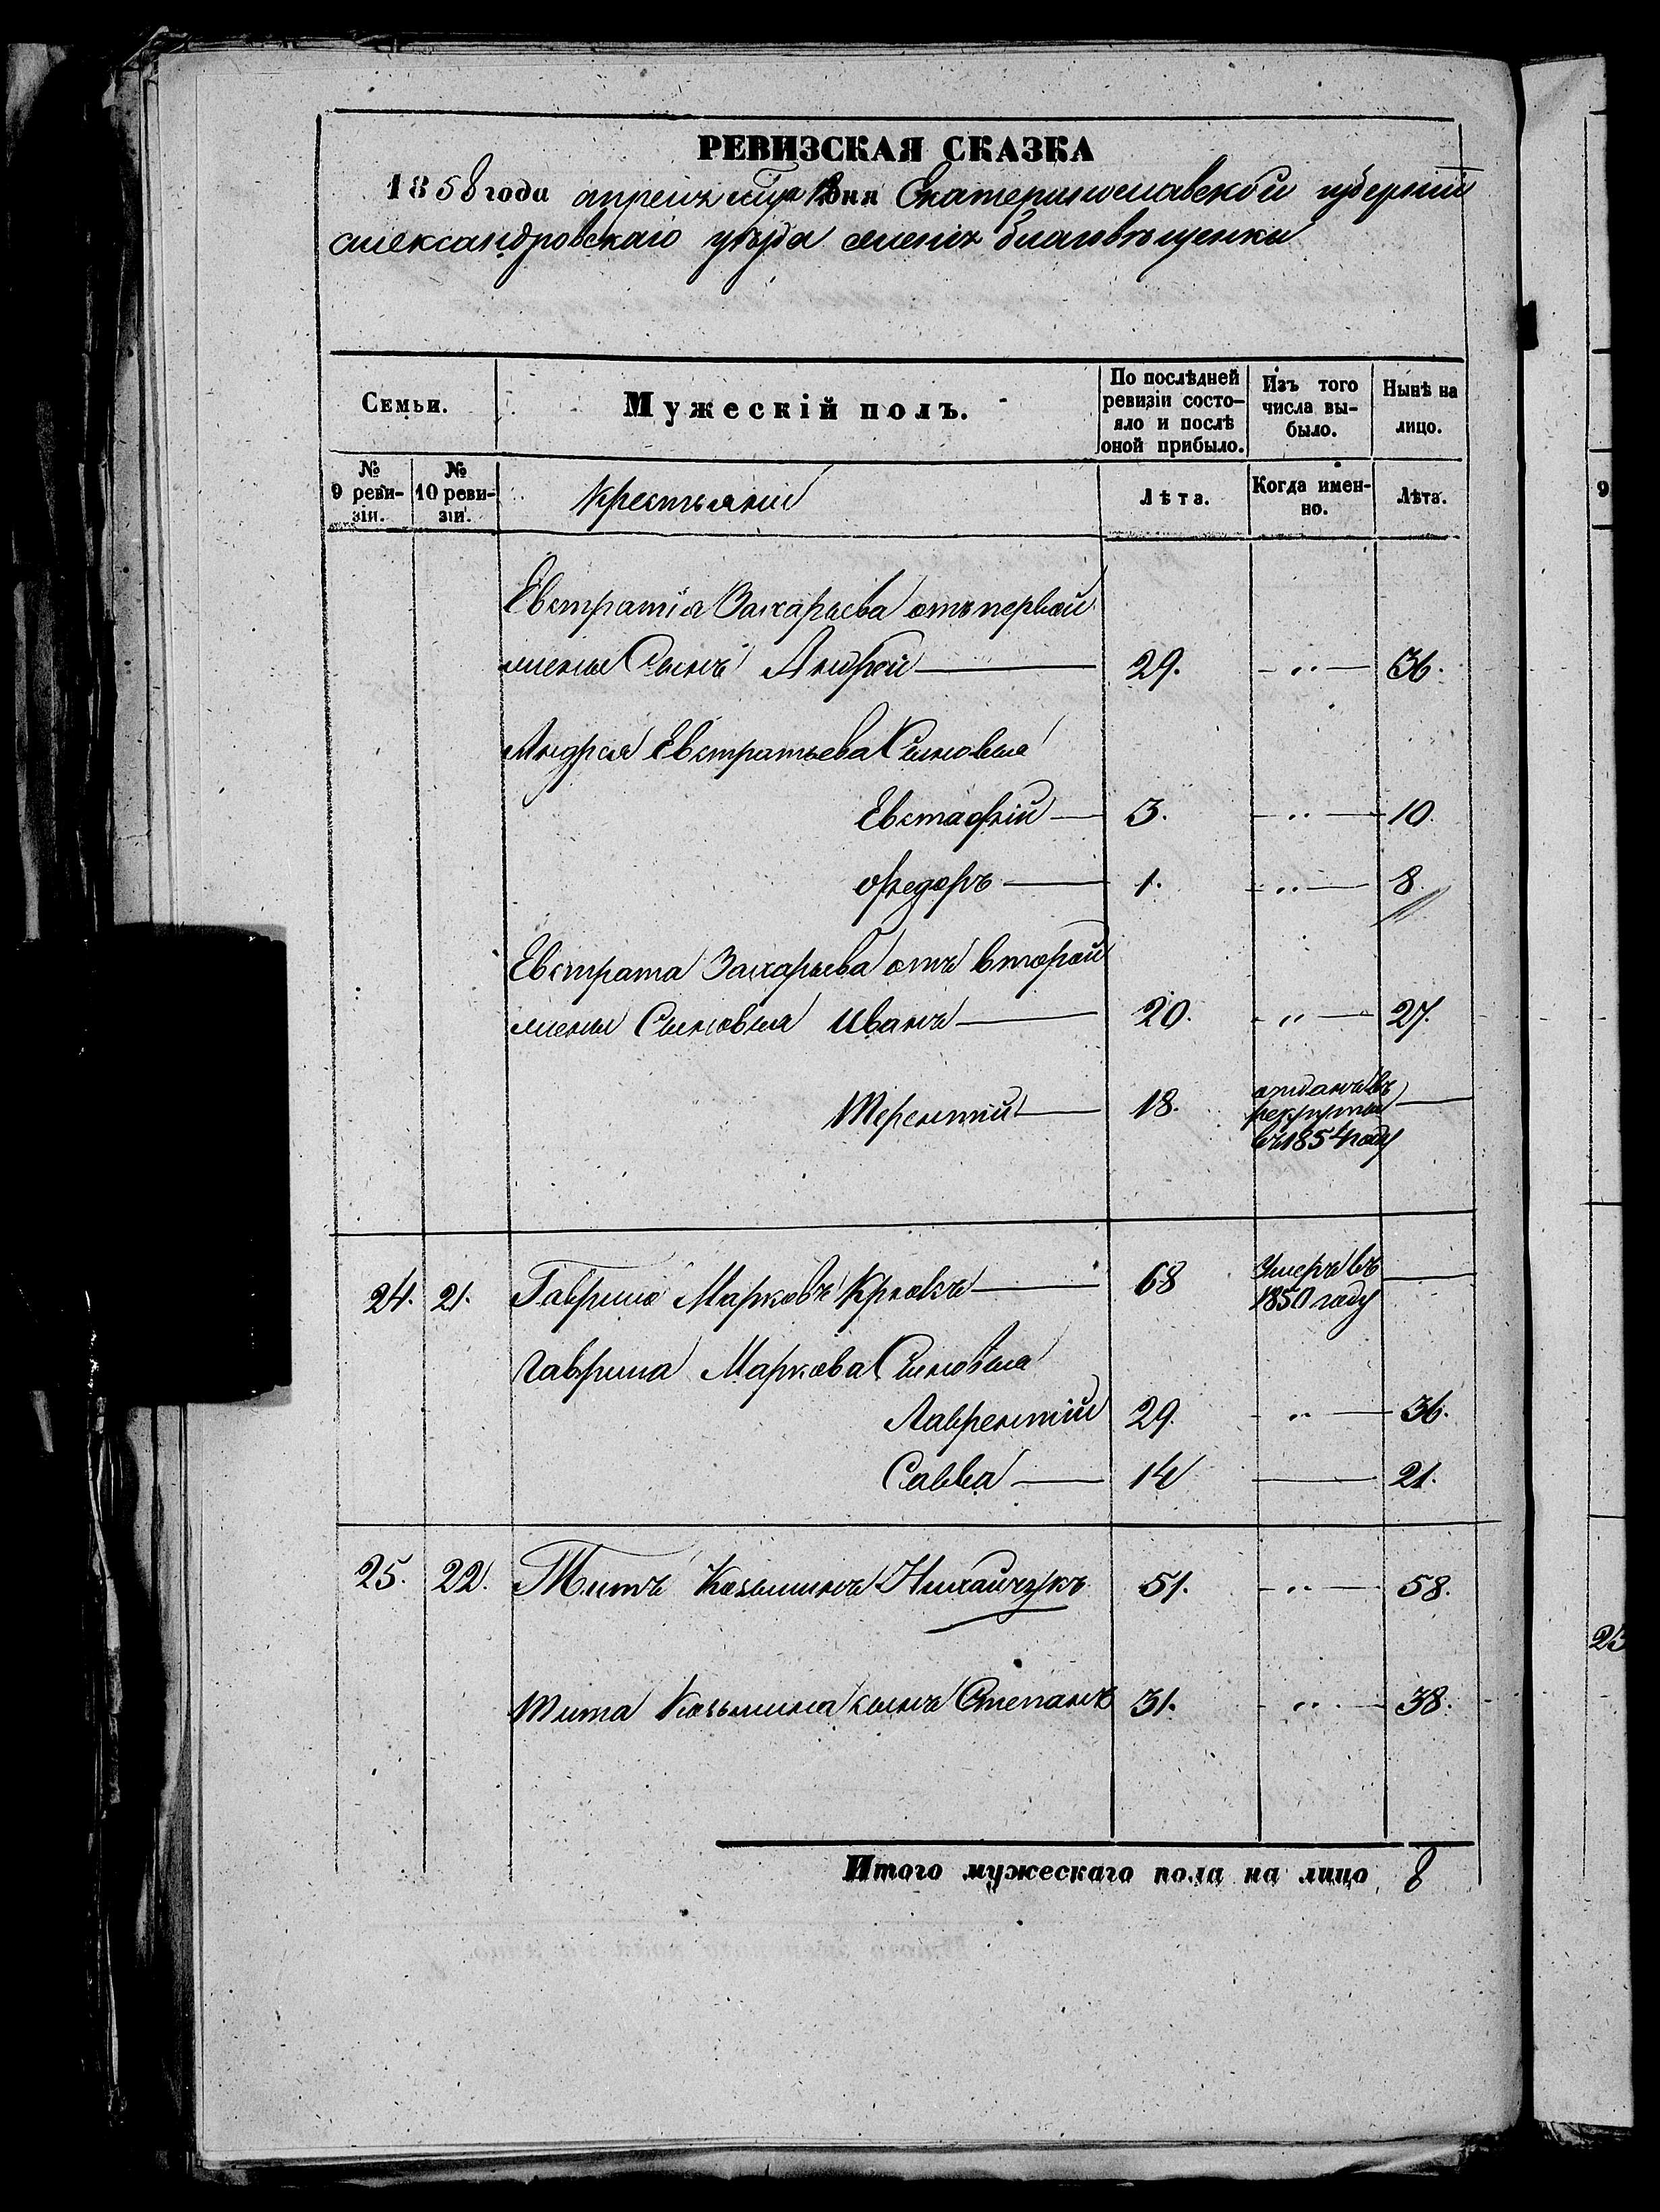 РЕВИЗСКАЯ СКАЗКА
1858 года апреля дня Екатеринославской губерніи
александровскаго уѣзда имѣнія благовѣщенки
Семьи.
Мужескій полъ.
По послѣдней ревизіи состо-
яло и послѣ
оной прибыло.
Изъ того
числа вы-
было.
Нынѣ на
лицо.
№
9 реви-
зіи.
№
10 реви-
зіи.
Крестьяніе
Лѣта.
Когда имен-
но.
Лѣта.
Евстратія Захарьева отъ первой
жены Сынъ Андрей 29. - „ - 36.
Андрея Евстратьева Сыновья
Евстафій 3. - „ - 10.
Федоръ 1. - „ - 8.
Евстрата Захарьева отъ второй
жены Сыновья Иванъ 20. - „ - 27.
Терентій 18. отданъ въ
рекруты
въ 1854 году
24. 21. Гаврило Марковъ Крюкъ 68 Умеръ въ
1850 году
Гаврила Маркова Сыновья
Лаврентій 29. - „ - 36.
Савва 14 — 21.
25. 22. Титъ Козьминъ Нихайчукъ 51. - „ - 58.
Тита Козьмина сынъ Степанъ 31. - „ - 38.
Итого мужескаго пола на лицо 8
9
25